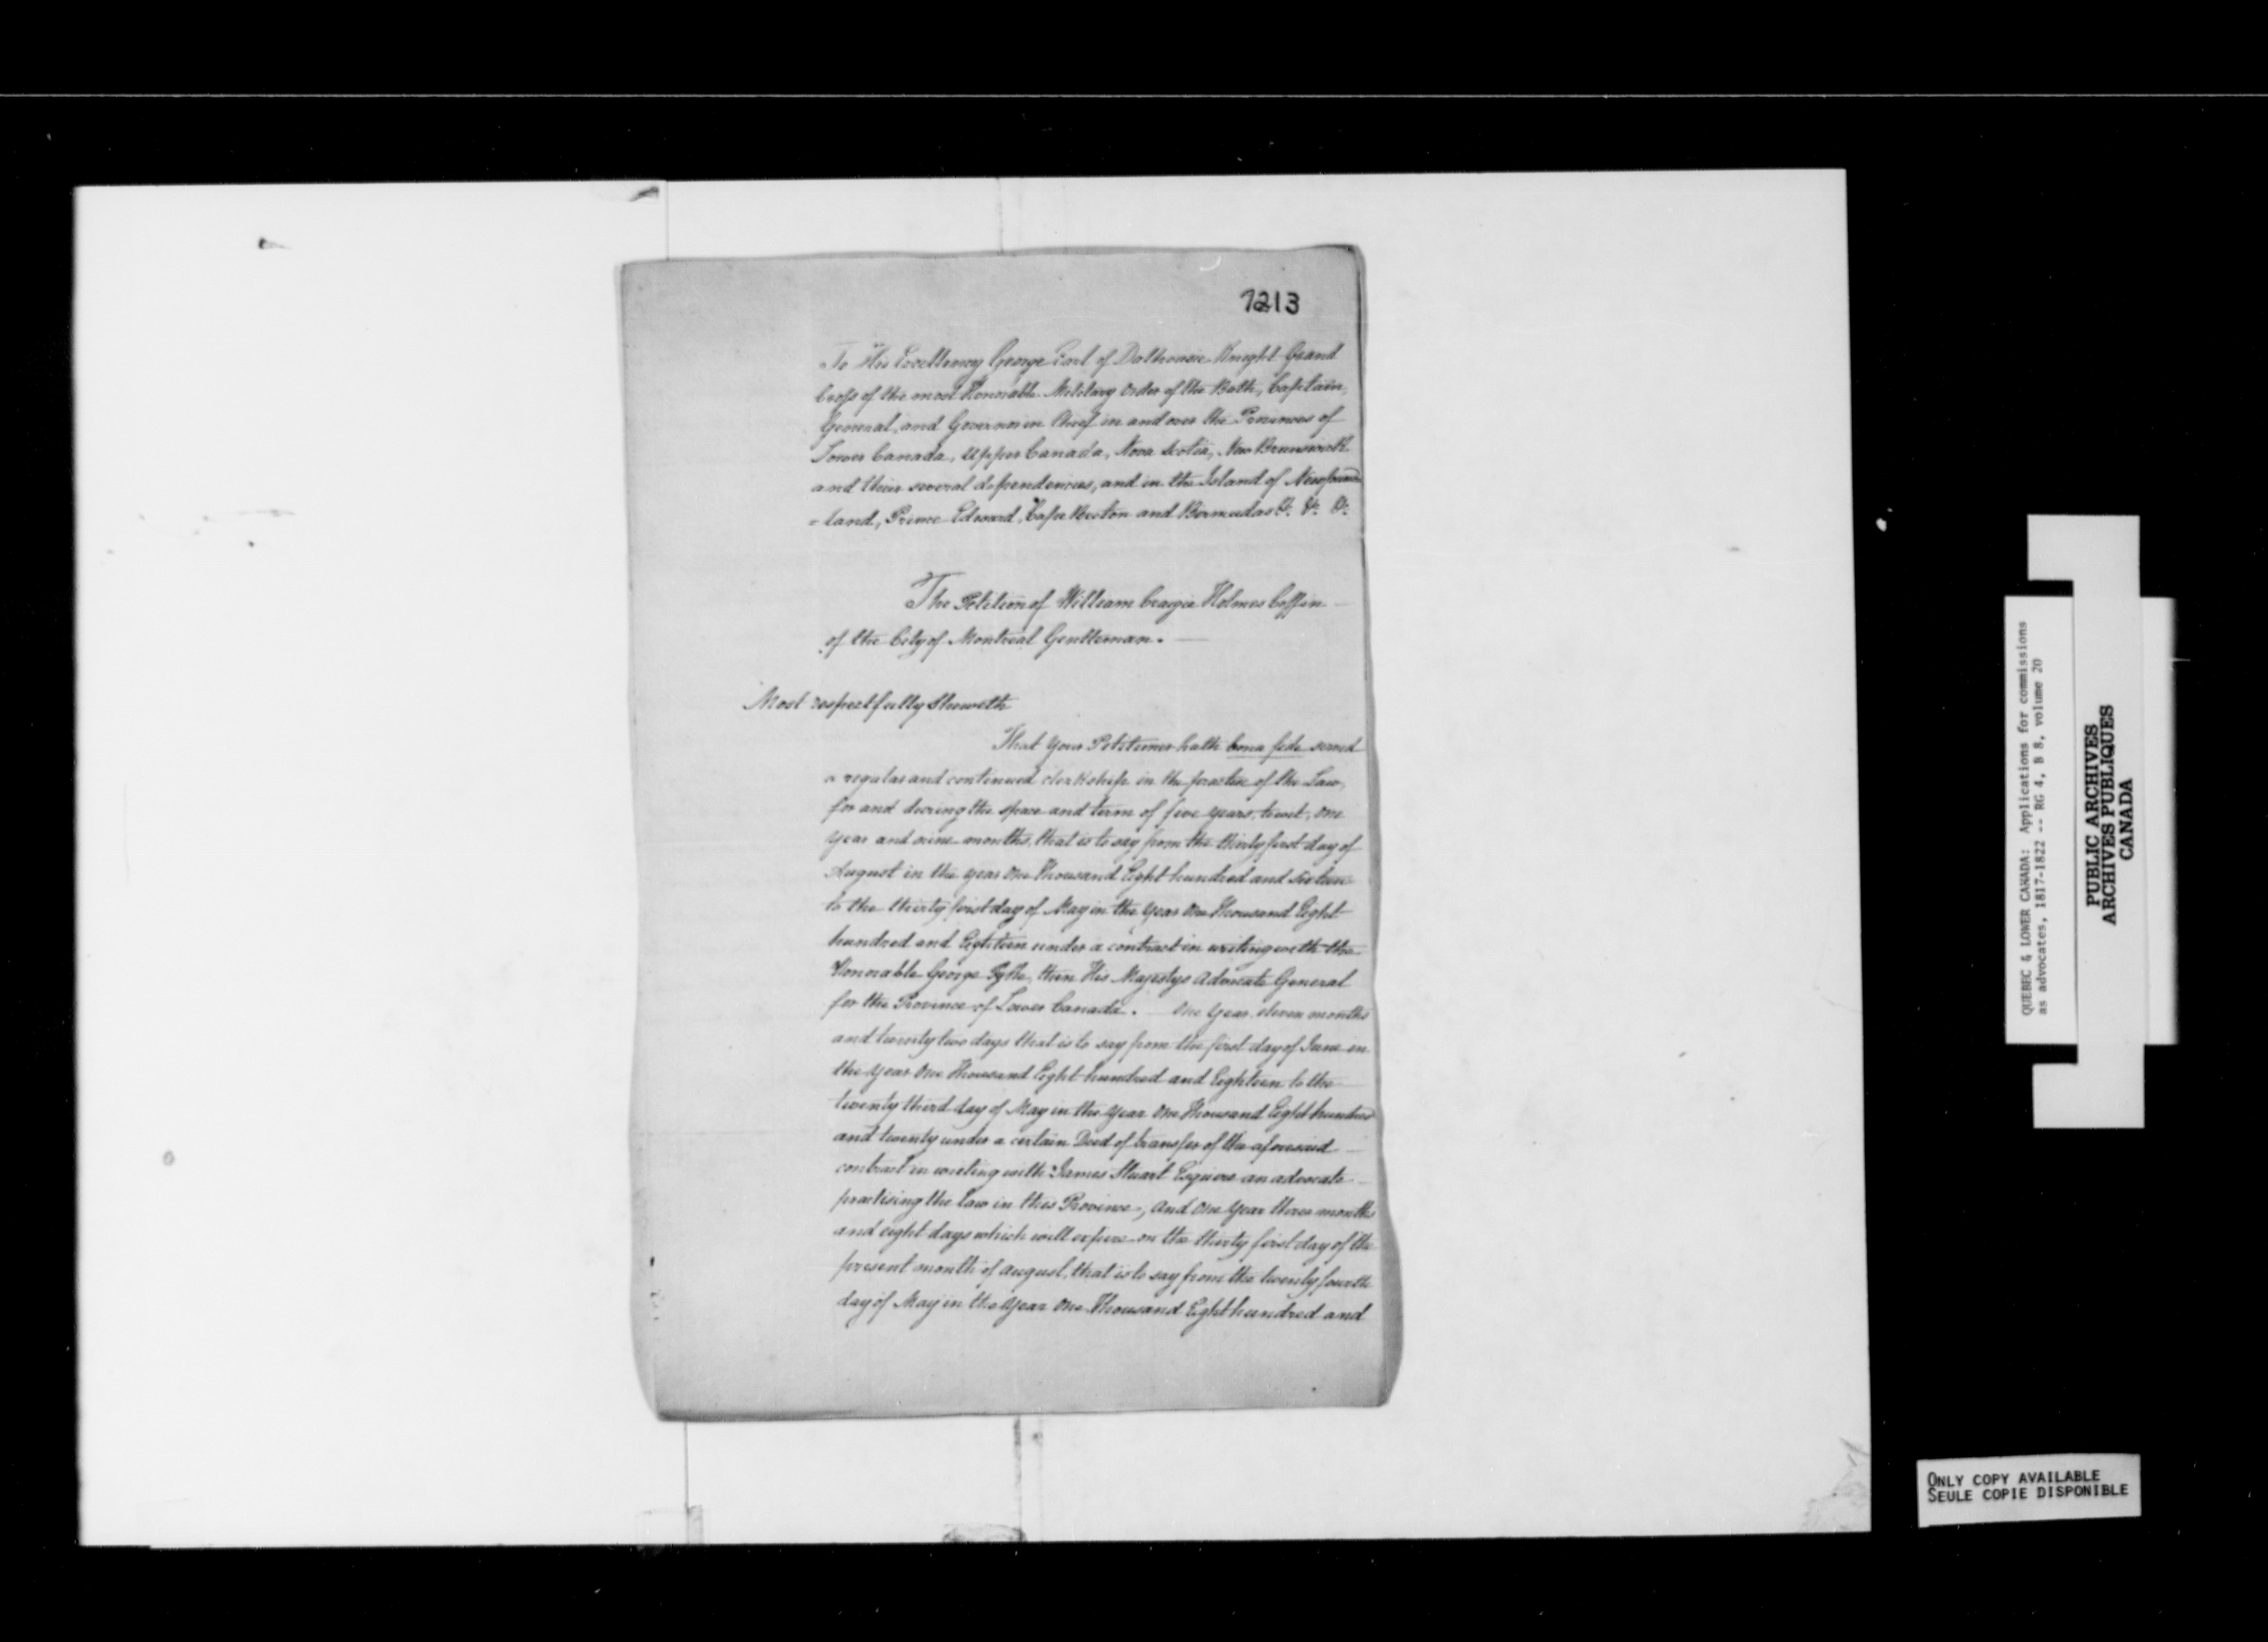 7213
To His Excellency George Earl of Dalhousie Knight Grand
Cross of the most Honorable Military Order of the Bath, Captain
General and Governor in Chief in and over the Provinces of
Lower Canada, Upper Canada, Nova Scotia, New Brunswick
and their several dependencies, and in the Island of Newfound
=land, Prince Edward, Cape Breton and Bermudas &c. &c. &c.
The Petition of William Craigie Holmes Coffin
of the City of Montreal Gentleman.
Most respectfully Sheweth
That your Petitioner hath bona fide served
a regular and continued clerkship in the practice of the Law,
for and during the space and term of five years, towit, one
year and nine months, that is to say from the thirty first day of
August in the year One Thousand Eight hundred and sixteen
to the thirty first day of May in the year One Thousand Eight
hundred and Eighteen under a contract in writing with the
Honorable George Pyke, then His Majestys Advocate General
for the Province of Lower Canada. One year eleven months
and twenty two days that is to say from the first day of June in
the year One Thousand Eight hundred and Eighteen to the
twenty third day of May in the year One Thousand Eight hundred
and twenty under a certain Deed of transfer of the aforesaid
contract in writing with James Stuart Esquire an advocate
practising the law in this Province, and One year three months
and eight days which will expire on the thirty first day of the
present month of August, that is to say from the twenty fourth
day of May in the year One Thousand Eight hundred and
QUEBEC & LOWER CANADA: Applications for commissions
as advocates, 1817-1822 -- RG 4, B 8, volume 20
PUBLIC ARCHIVES
ARCHIVES PUBLIQUES
CANADA
ONLY COPY AVAILABLE
SEULE COPIE DISPONIBLE